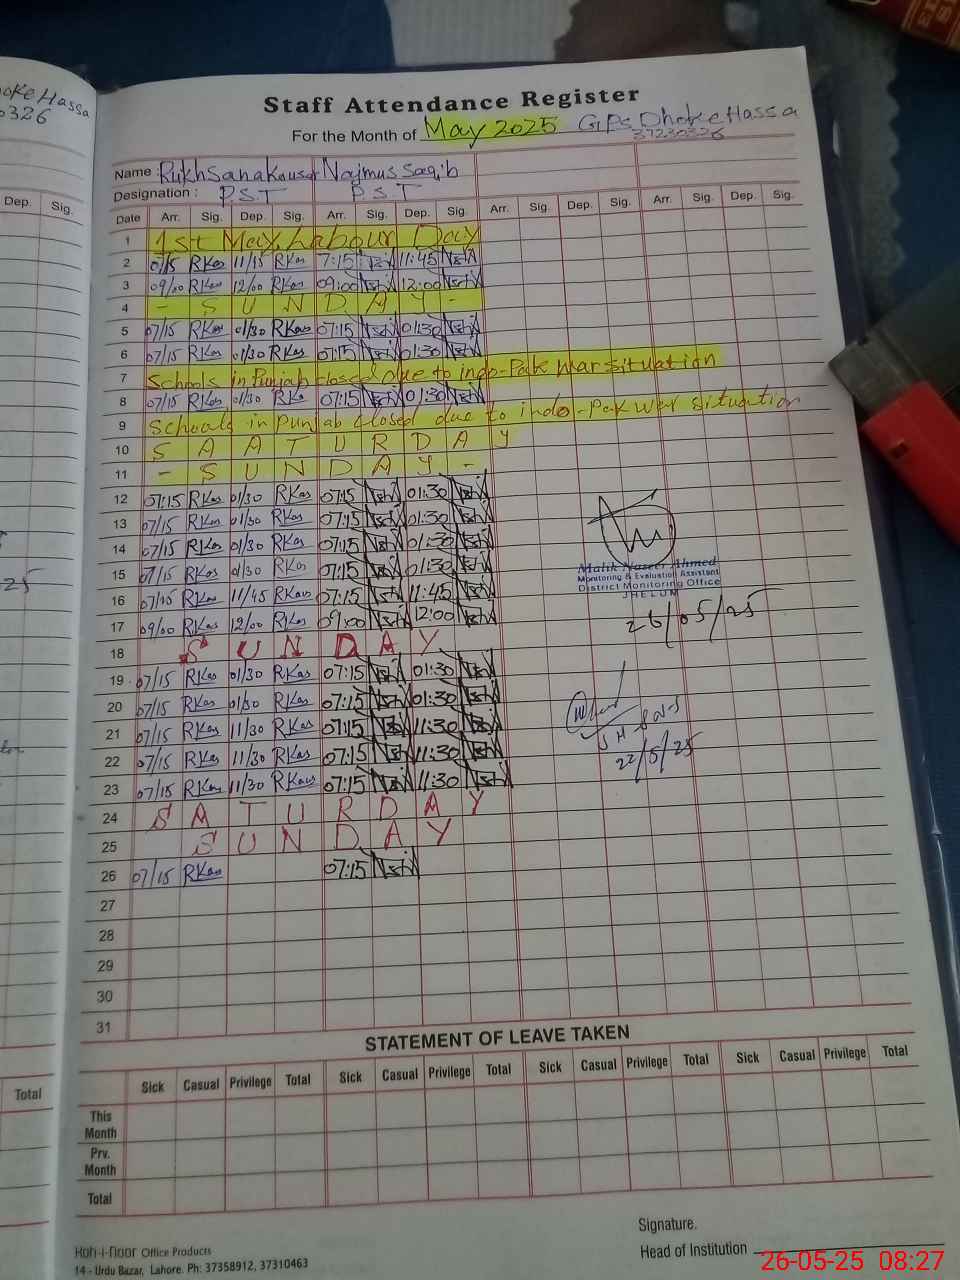 oke Hassa
0326
Staff Attendance Register
For the Month of May 2025 GPS Dhoke Hassa
37230326
Name : Rukhsana Kousar Najmus Saqib
Designation : P.S.T P.S.T
Dep. Sig.
Date Arr. Sig. Dep. Sig. Arr. Sig. Dep. Sig. Arr. Sig. Dep. Sig. Arr. Sig. Dep. Sig.
1 1st May, Labour Day
2 07/15 RKas 11/45 RKas 7:15 11:45
3 09/00 RKas 12/00 RKas 09:00 12:00
4 - S U N D A Y -
5 07/15 RKas 01/30 RKas 07:15 01:30
6 07/15 RKas 01/30 RKas 07:15 01:30
7 Schools in Punjab closed due to indo-Pak war situation
8 07/15 RKas 01/30 RKas 07:15 01:30
9 Schools in Punjab closed due to indo-pak war situation
10 S A A T U R D A Y
11 - S U N D A Y -
12 07:15 RKas 01/30 RKas 07:15 01:30
13 07/15 RKas 01/30 RKas 07:15 01:30
14 07/15 RKas 01/30 RKas 07:15 01:30
15 07/15 RKas 01/30 RKas 07:15 01:30
16 07/15 RKas 11/45 RKas 07:15 11:45
17 09/00 RKas 12/00 RKas 09:00 12:00
18 S U N D A Y
19 07/15 RKas 01/30 RKas 07:15 01:30
20 07/15 RKas 01/30 RKas 07:15 01:30
21 07/15 RKas 11/30 RKas 07:15 11:30
22 07/15 RKas 11/30 RKas 07:15 11:30
23 07/15 RKas 11/30 RKas 07:15 11:30
24 S A T U R D A Y
25 S U N D A Y
26 07/15 RKas 07:15
27
28
29
30
31
Malik Naseer Ahmed
Monitoring & Evaluation Assistant
District Monitoring Office
JHELUM
26/05/25
22/5/25
25
STATEMENT OF LEAVE TAKEN
Sick Casual Privilege Total Sick Casual Privilege Total Sick Casual Privilege Total Sick Casual Privilege Total
Total
This Month
Prv. Month
Total
Signature.
Head of Institution
Koh-i-noor Office Products
14 - Urdu Bazar, Lahore. Ph: 37358912, 37310463
26-05-25 08:27